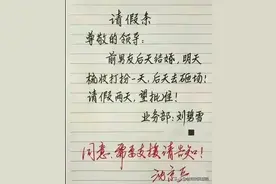 请假条
尊敬的领导：
前男友后天结婚，明天
梳妆打扮一天，后天去砸场！
请假两天，望批准！
业务部：刘碧雪
同意，需要支援请告知！